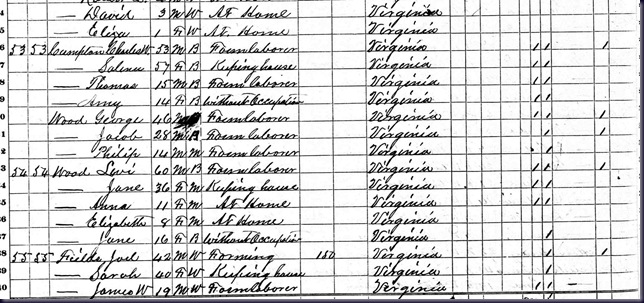 David 3 M W At Home Virginia
— Eliza 1 F W At Home Virginia
6 53 53 Cumpton Charles W 53 M B Farm laborer Virginia 1 1 1
7 — 57 F B Keeping house Virginia 1 1
8 — Thomas 15 M B Farm laborer Virginia 1 1
9 — Amy 14 F B Without Occupation Virginia 1 1
0 Wood George 46 M Farm laborer Virginia 1 1 1
1 — Jacob 28 M B Farm laborer Virginia 1 1
2 — Philip 14 M M Farm laborer Virginia 1
3 54 54 Wood Levi 60 M B Farm laborer Virginia 1 1 1
4 — Jane 36 F M Keeping house Virginia 1 1
5 — Anna 11 F M At Home Virginia 1 1
6 — Elizabeth 8 F M At Home Virginia
37 — Jane 16 F B Without Occupation Virginia 1 1
38 55 55 Fields Joel 42 M W Farming 150 Virginia 1 1
39 — Sarah 40 F W Keeping house Virginia 1
40 — James W 19 M W Farm laborer Virginia 1 1 —